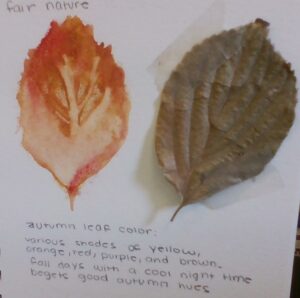 fair nature
autumn leaf color:
various shades of yellow,
orange, red, purple, and brown.
fall days with a cool night time
begets good autumn hues